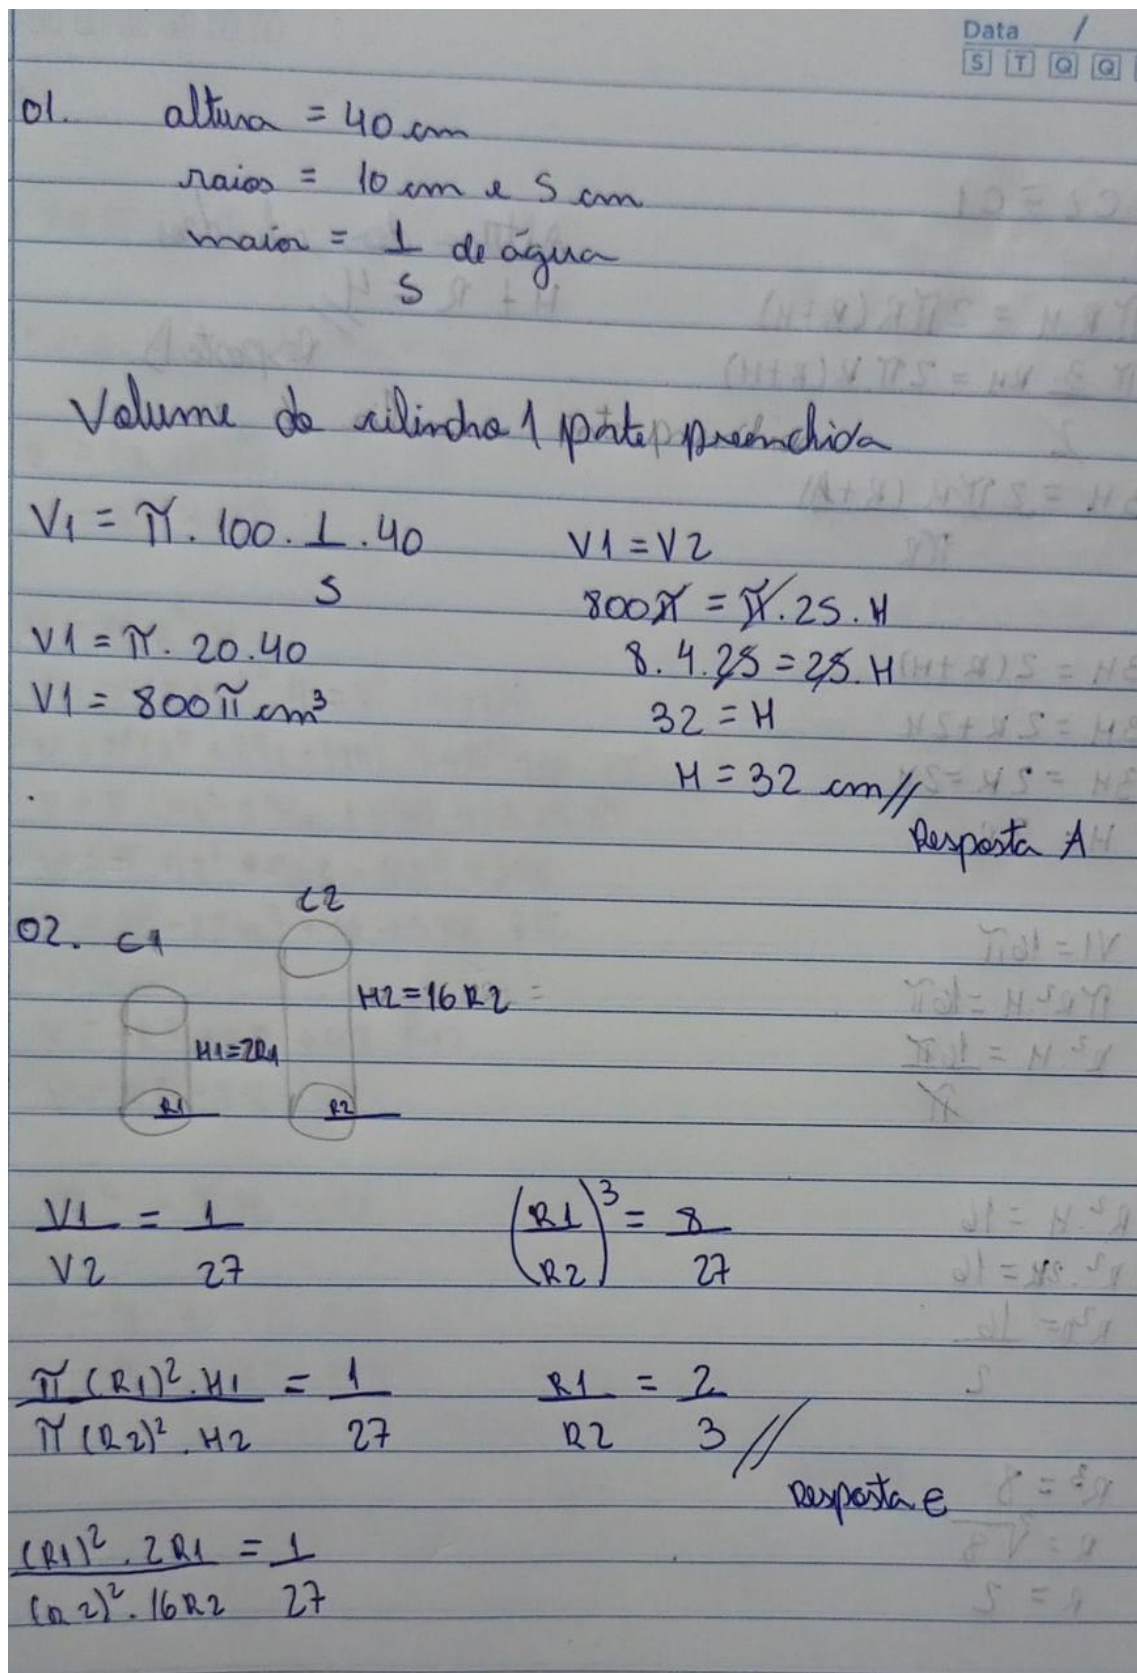 Data /
S T Q Q
01. altura = 40 cm
raios = 10 cm e 5 cm
maior = 1/5 de água
Volume do cilindro 1 parte preenchida
V1 = π. 100. 1/5 .40
V1 = π. 20.40
V1 = 800π cm³
V1 = V2
800π = π.25.H
8.4.25 = 25.H
32 = H
H = 32 cm//
Resposta A
02. C1
C2
H1=2R1
H2=16R2 =
R1
R2
V1/V2 = 1/27
π(R1)².H1/π(R2)².H2 = 1/27
(R1)².2R1/(R2)².16R2 = 1/27
(R1/R2)³ = 8/27
R1/R2 = 2/3 //
Resposta E